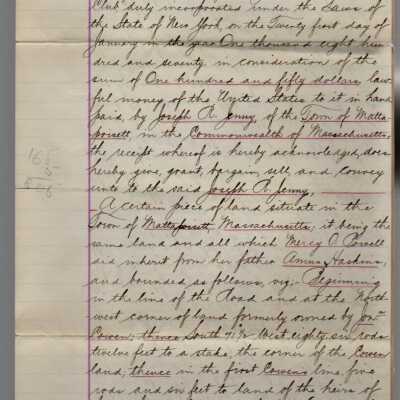 Club" duly incorporated under the Laws of
the State of New York, on the Twenty first day of
January in the year One thousand eight hun-
dred and seventy in consideration of the
sum of One hundred and fifty dollars, law-
ful money of the United States to it in hand
paid, by Joseph R. Jenny, of the Town of Matta-
poisett, in the Commonwealth of Massachusetts,
the receipt whereof is hereby acknowledged, does
hereby give, grant, bargain, sell, and convey
unto to the said Joseph R. Jenny,
A certain piece of land situate in the
Town of Mattapoisett, Massachusetts; it being the
same land and all which Mercy O. Powell
did inherit from her father Amos Haskins,
and bounded as follows, viz:- Beginning
in the line of the Road and at the North-
west corner of land formerly owned by Jnᵒ
Cowen; thence South 71½ West eighty six rods
twelve feet to a stake, the corner of the Cowen
land; thence in the first Cowens line, five
rods and six feet to land of the heirs of